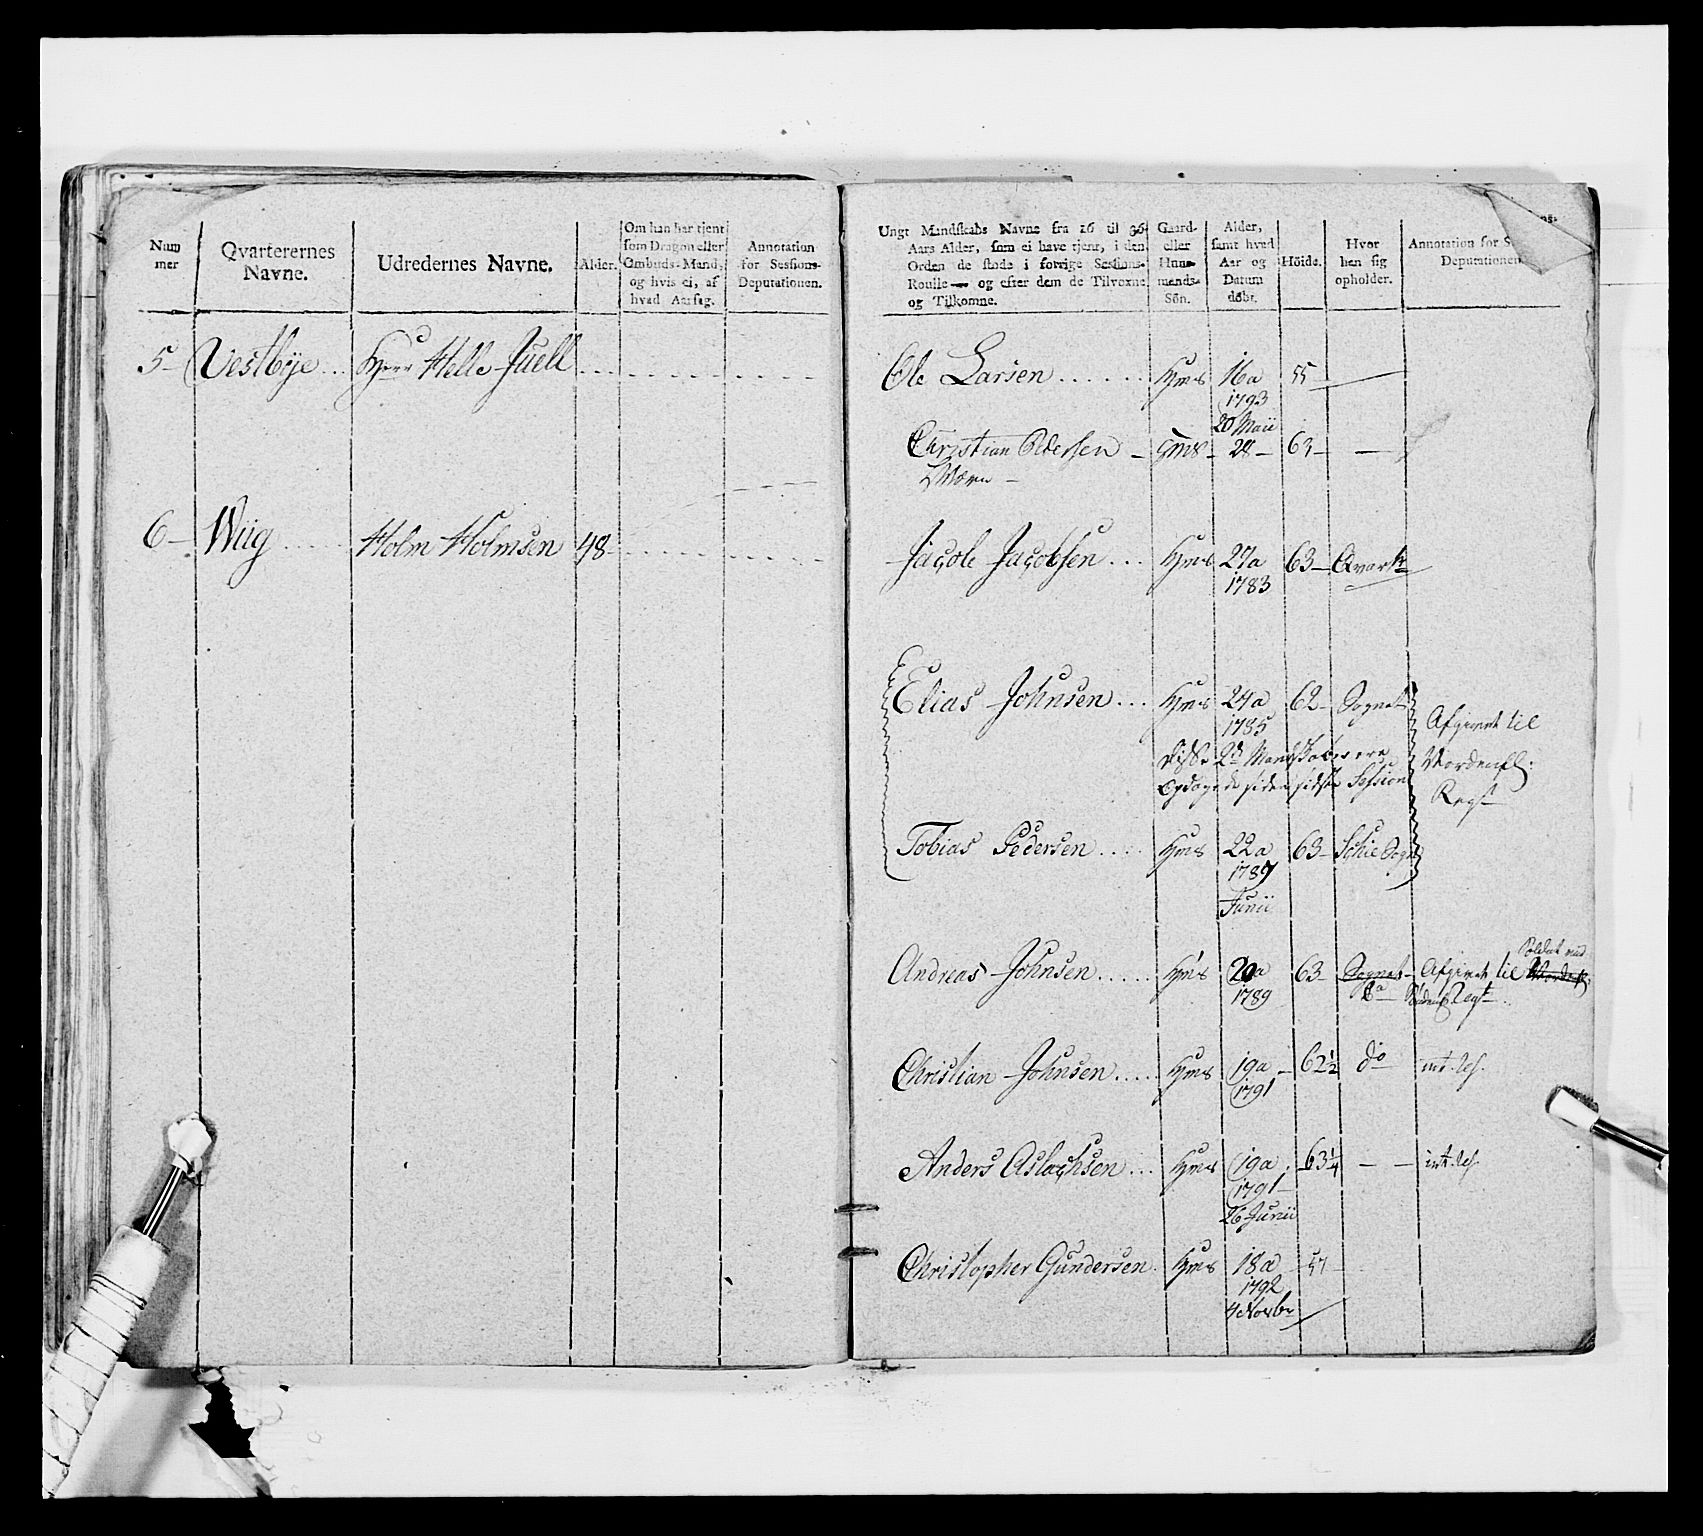 Num
mer
Qvarterernes
Navne.
Udredernes Navne.
Alder.
Om han har tjent
som Dragon eller
Ombuds-Mand,
og hvis ei, af
hvad Aarsag.
Annotation
for Sessions-
Deputationen.
5 Vestbye Herr Helle Juell
6 Wiig Holm Holmsen 48
Ungt Mandskabs Navne fra 16 til 36
Aars Alder, som ei have tjent, i den
Orden de stode i forrige Sessions-
Roulle — og efter dem de Tilvoxne
og Tilkomne.
Gaard-
eller
Huus-
mands-
Sön.
Alder,
samt hvad
Aar og
Datum
döbt.
Höide.
Hvor
han sig
opholder.
Annotation for S
Deputationen
Ole Larsen Hms 16a 55
1793
20 Maii
Christian Pedersen Gms 28 63
Jacob Jacobsen Hms 27a 63
1783
Elias Johnsen Hms 24a 62 Sognet
1785
Afgivet til
Disse 2de Mandskaber ere
Nordenfl:
Opdagede siden sidste Session
Regt
Tobias Pedersen Hms 22a 63 Schie Sogn
1787
Junii
Soldat ved
Andreas Johnsen Hms 20a 63 Sognet Afgivet til
1789
Regt
Christian Johnsen Hms 19a 62½ do
1791
Anders Aslachsen Hms 19a 63¼
1791
26 Junii
Christopher Gundersen Hms 18a 57
1792
4 Novbr